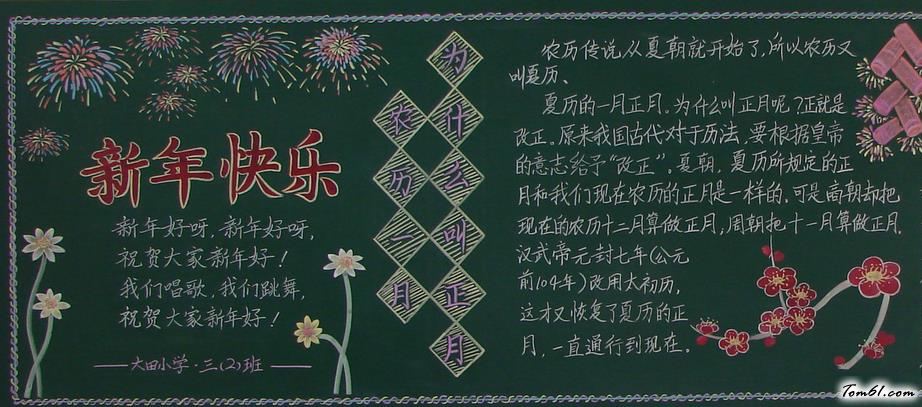 新年快乐
新年好呀，新年好呀，
祝贺大家新年好！
我们唱歌，我们跳舞，
祝贺大家新年好！
大田小学·三(2)班
农历一月
为什么叫正月
农历传说从夏朝就开始了，所以农历又
叫夏历、
夏历的一月正月。为什么叫正月呢？正就是
改正。原来我国古代对于历法，要根据皇帝
的意志给予“改正”。夏朝，夏历所规定的正
月和我们现在农历的正月是一样的，可是商朝却把
现在的农历十二月算做正月，周朝把十一月算做正月，
汉武帝元封七年（公元
前104年）改用太初历，
这才又恢复了夏历的正
月，一直通行到现在。
Tom61.com